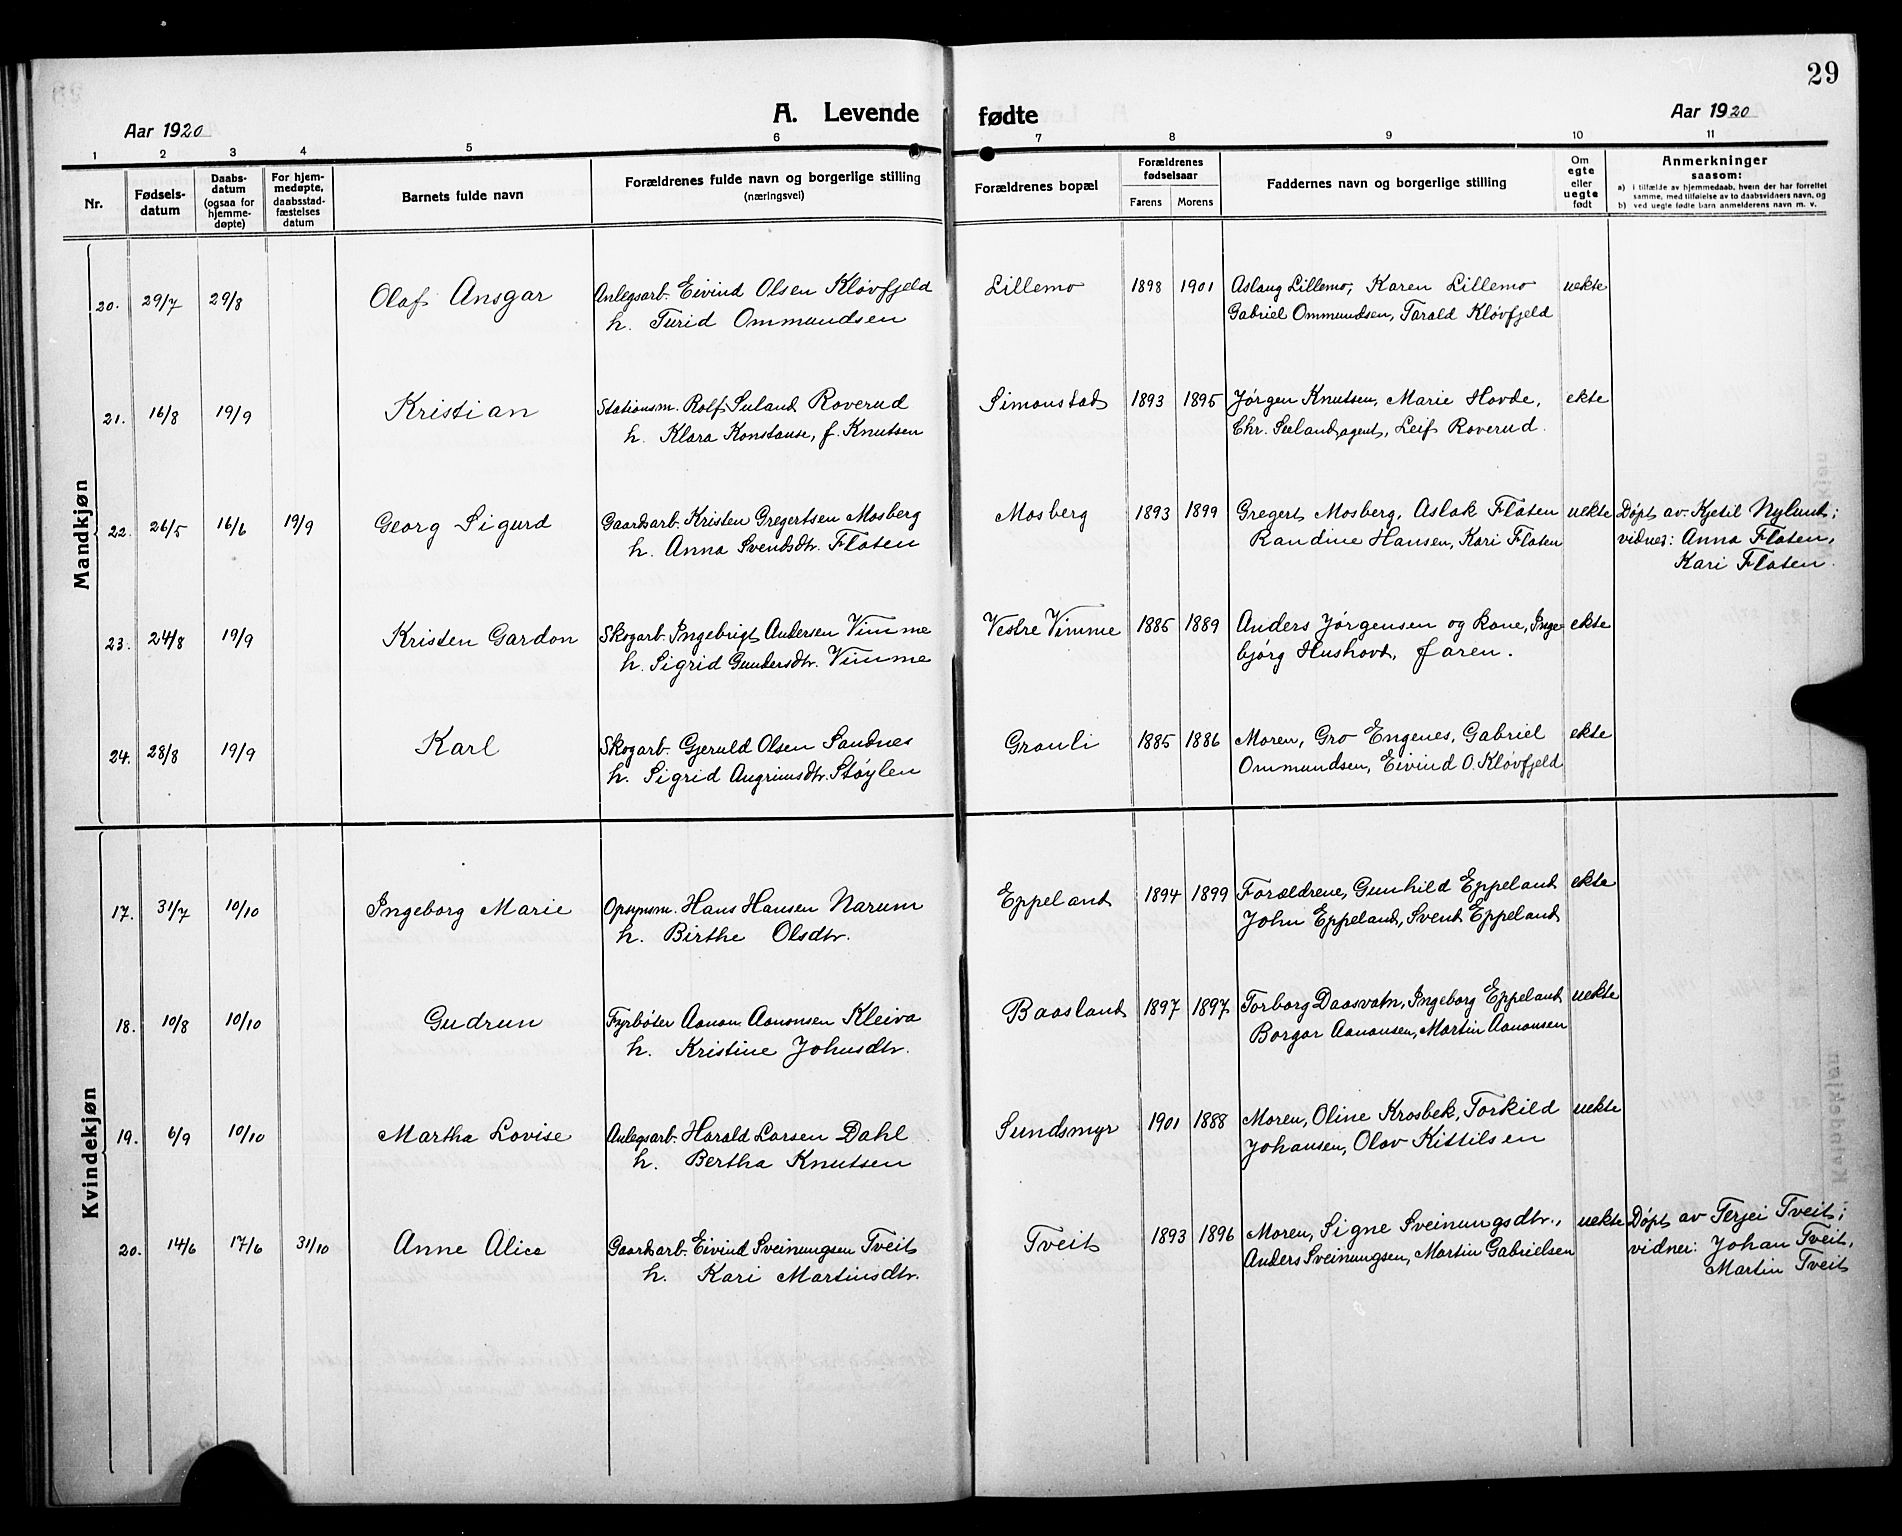 29
A. Levende fødte
Aar 1920
Aar 1920
1 2 3 4 5 6 7 8 9 10 11
Nr.
Fødsels-
datum
Daabs-
datum
(ogsaa for
hjemme-
døpte)
For hjem-
medøpte,
daabsstad-
fæstelses
datum
Barnets fulde navn
Forældrenes fulde navn og borgerlige stilling
(næringsvei)
Forældrenes bopæl
Forældrenes
fødselsaar
Farens Morens
Faddernes navn og borgerlige stilling
Om
egte
eller
uegte
født
Anmerkninger
saasom:
a) i tilfælde av hjemmedaab, hvem der har forrettet
samme, med tilføielse av to daabsvidners navn, og
b) ved uegte fødte barn anmelderens navn m. v.
Mandkjøn
20. 29/7 29/8 Olaf Ansgar Anlegsarb. Eivind Olsen Kløvfjeld Lillemo 1898 1901 Aslaug Lillemo, Karen Lillemo uekte
h. Turid Ommundsen Gabriel Ommundsen, Tarald Kløvfjeld
21. 16/8 19/9 Kristian Stationsm. Rolf Seland Roverud Simonstad 1893 1895 Jørgen Knutsen, Marie Hovde, ekte
h. Klara Konstanse, f. Knutsen Chr. Seeland, agent, Leif Roverud.
22. 26/5 16/6 19/9 Georg Sigurd Gaardsarb. Kristen Gregertsen Mosberg Mosberg 1893 1899 Gregert Mosberg, Aslak Flaten uekte Døpt av Kjetil Nylund;
h. Anna Svendsdtr. Flaten Randine Hansen, Kari Flaten vidner: Anna Flaten,
Kari Flaten.
23. 24/8 19/9 Kristen Gardon Skogarb. Ingebrigt Andersen Vimme Vestre Vimme 1885 1889 Anders Jørgensen og kone, Inge ekte
h. Sigrid Gundersdtr. Vimme bjørg Hushovd, faren.
24. 28/8 19/9 Karl Skogarb. Gjeruld Olsen Sandnes Granli 1885 1886 Moren, Gro Engenes, Gabriel ekte
h. Sigrid Angrimsdtr. Støylen Ommundsen, Eivind O. Kløvfjeld
Kvindekjøn
17. 31/7 10/10 Ingeborg Marie Opsynsm. Hans Hansen Narum Eppeland 1894 1899 Forældrene, Gunhild Eppeland ekte
h. Birthe Olsdtr. John Eppeland, Svend Eppeland
18. 10/8 10/10 Gudrun Fyrbøter Aanon Aanonsen Kleiva Baasland 1897 1897 Torborg Daasvatn, Ingeborg Eppeland uekte
h. Kristine Johnsdtr. Borgar Aanonsen, Martin Aanonsen
19. 6/9 10/10 Martha Lovise Anlegsarb. Harald Larsen Dahl Sundsmyr 1901 1888 Moren, Oline Krosbek, Torkild uekte
h. Bertha Knutsen Johansen, Olav Kittilsen
20. 14/6 17/6 31/10 Anne Alice Gaardsarb. Eivind Sveinungsen Tveit Tveit 1893 1896 Moren, Signe Sveinungsdtr., uekte Døpt av Terjei Tveit;
h. Kari Martinsdtr. Anders Sveinungsen, Martin Gabrielsen vidner: Johan Tveit,
Martin Tveit